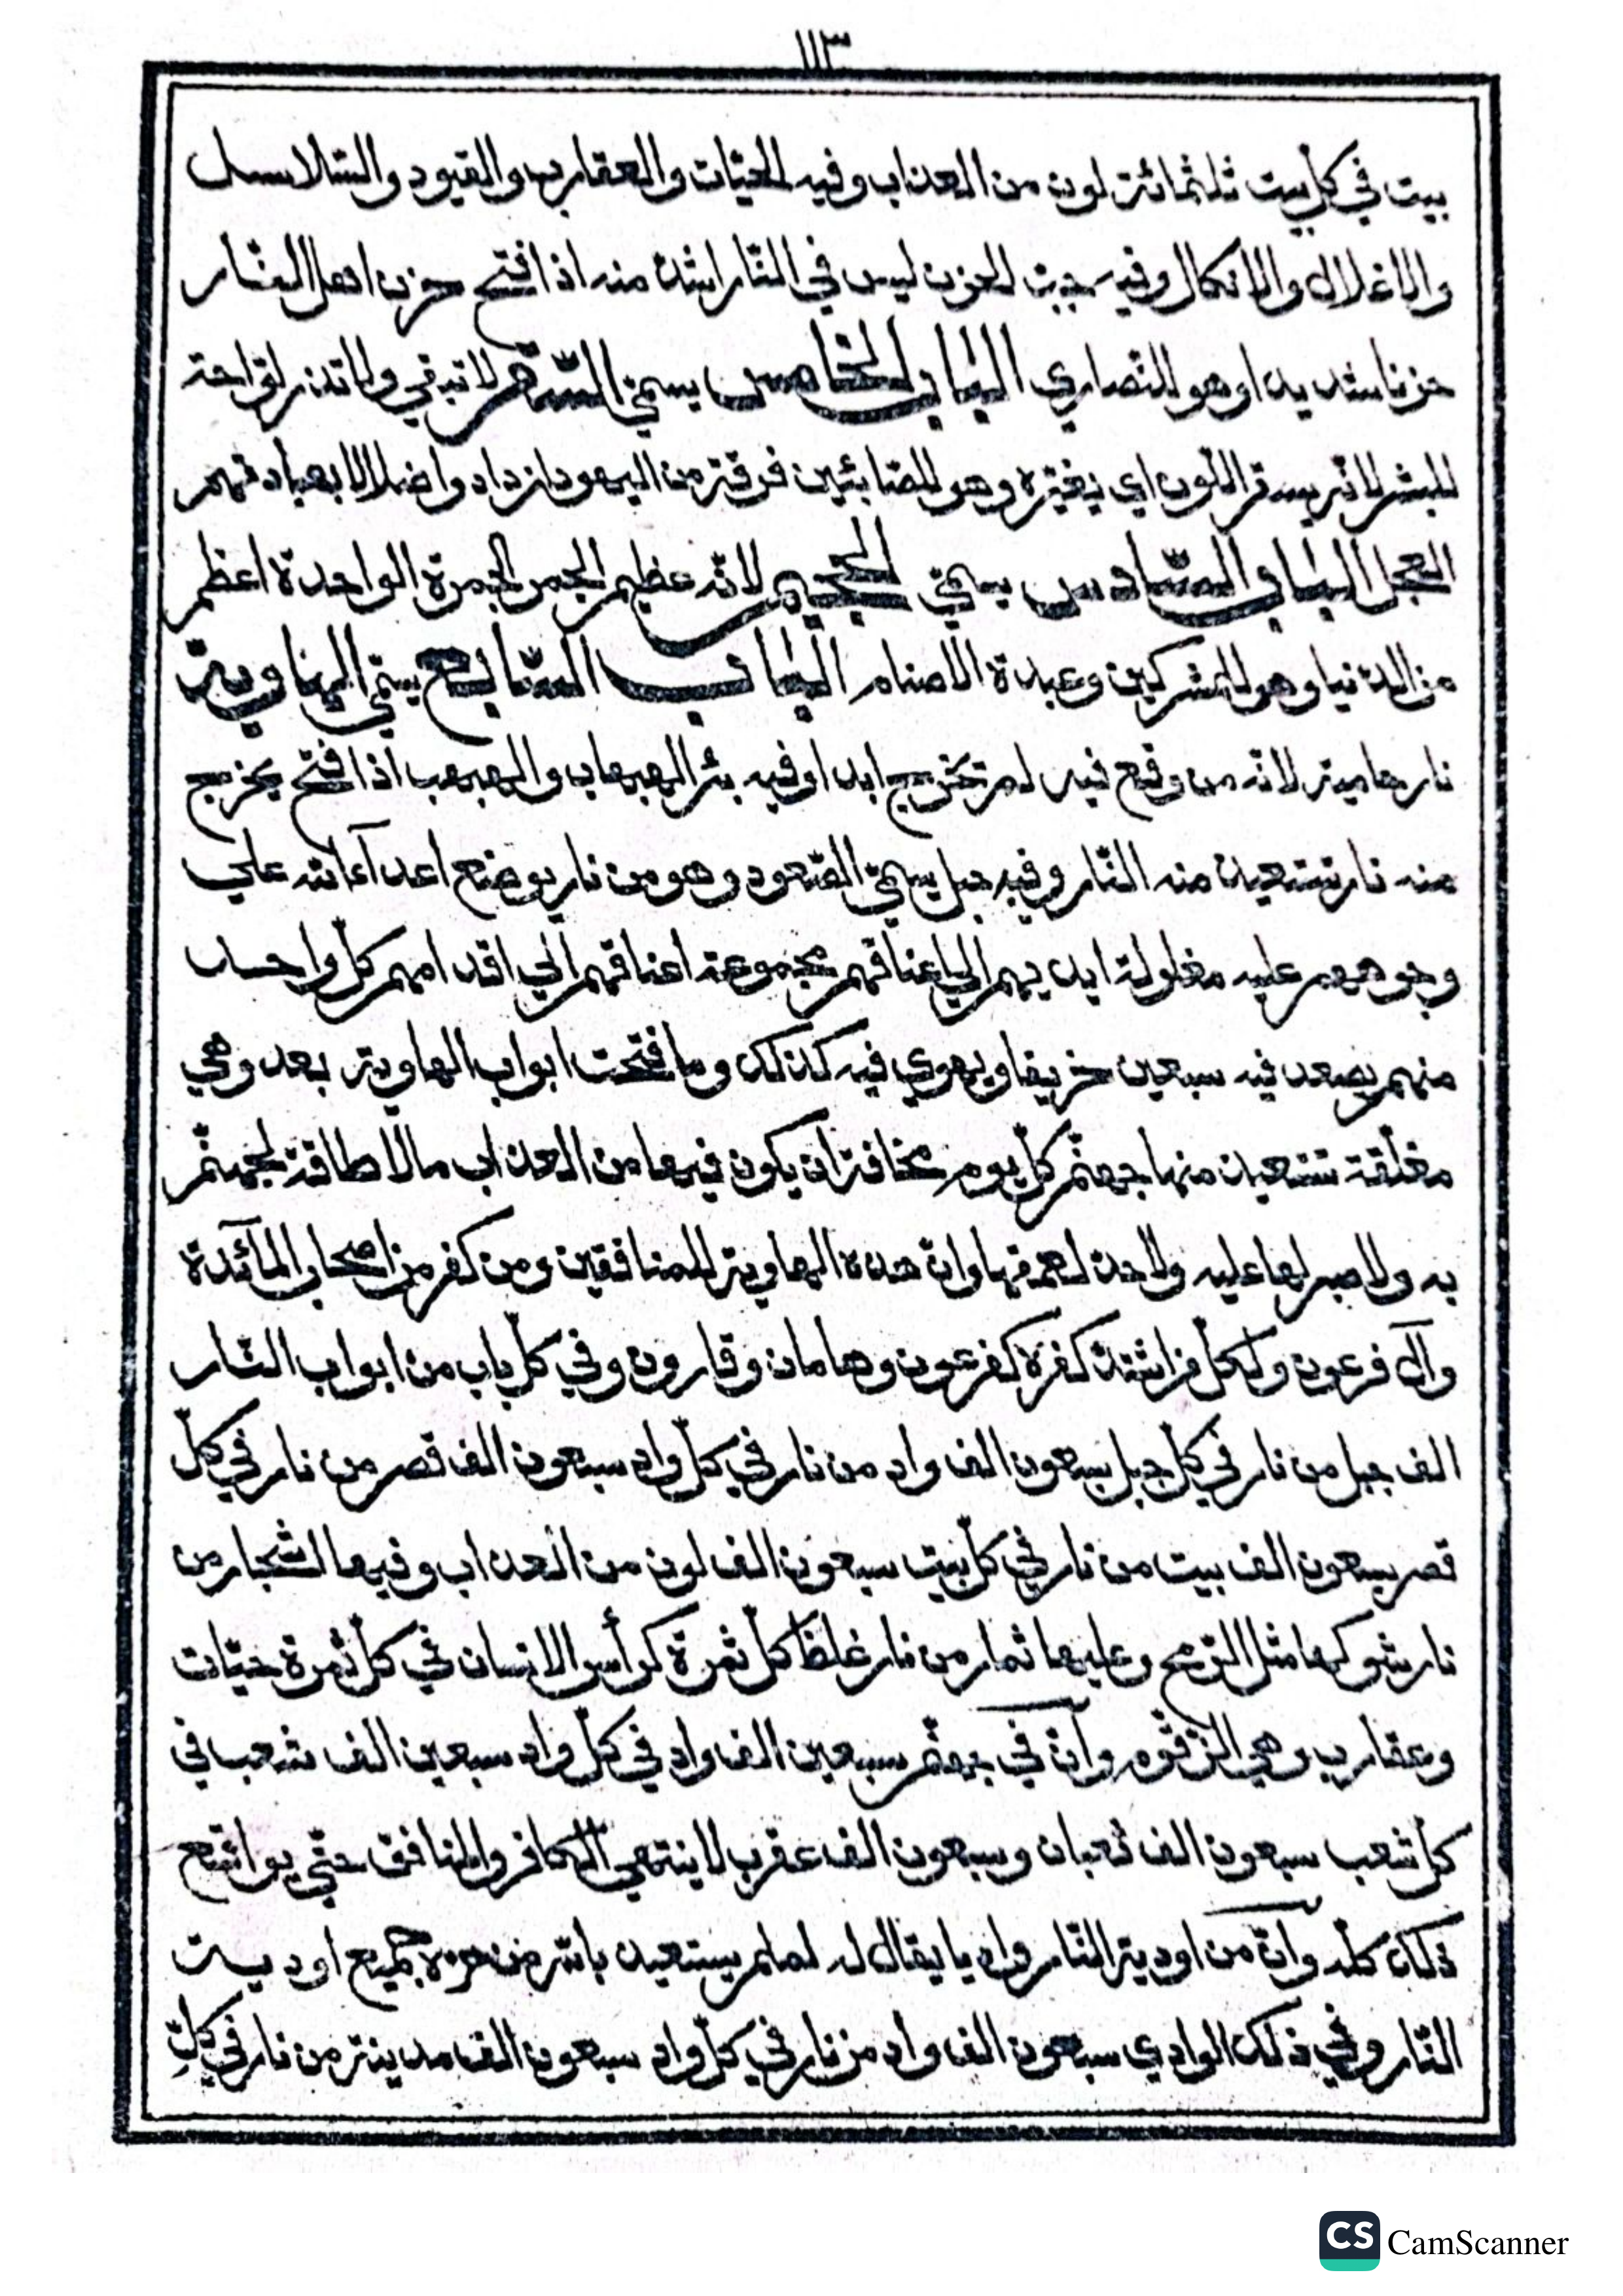 ١١٣
بيت في كل بيت ثلثمائة لون من العذاب وفيه الحيّات والعقارب والقيود والسّلاسل
والاغلال والانكال وفيه جبّ الحزن ليس في النّار اشدّ منه اذا فتح حزن اهل النّار
حزنا شديدا وهو للنّصاري الباب الخامس يسمّي السّقر لا تبقي ولا تذر لوّاحة
للبشر لانّه يسقر اللّون اي يغيّره وهو للصّابئين فرقة من اليهود ازدادوا ضلالا بعبادتهم
العجل الباب السّادس يسمّي الجحيم لانّه عظيم الجمر الجمرة الواحدة اعظم
من الدّنيا وهو للمشركين وعبدة الاصنام الباب السّابع يسمّي الهاوية
نار حامية لانّه من وقع فيه لم يخرج ابدا وفيه بئر الهبهاب والهبهب اذا فتح يخرج
منه نار تستعيذ منه النّار وفيه جبل يسمّي الصّعود وهو من نار يوضع اعدآء الله علي
وجوههم عليه مغلولة ايديهم الي اعناقهم مجموعة اعناقهم الي اقدامهم كلّ واحد
منهم يصعد فيه سبعين خريفا ويهوي فيه كذلك وما فتحت ابواب الهاوية بعد وهي
مغلّقة تستعيذ منها جهنّم كلّ يوم مخافة ان يكون فيها من العذاب مالا طاقة لجهنّم
به ولا صبر لها عليه ولا حدّ لعمقها وانّ هذه الهاوية للمنافقين ومن كفر من اصحاب المآئدة
وآل فرعون ولكلّ من اشتدّ كفره كفرعون وهامان وقارون وفي كلّ باب من ابواب النّار
الف جبل من نار في كلّ جبل سبعون الف واد من نار في كلّ واد سبعون الف قصر من نار في كلّ
قصر سبعون الف بيت من نار في كلّ بيت سبعون الف لون من العذاب وفيها اشجار من
نار شوكها مثل الرّمح وعليها ثمار من نار غلظ كلّ ثمرة كرأس الانسان في كلّ ثمرة حيّات
وعقارب وهي الزقّوم وانّ في جهنّم سبعين الف واد في كلّ واد سبعين الف شعب في
كلّ شعب سبعون الف ثعبان وسبعون الف عقرب لا ينتهي الكافر والمنافق حتّي يواقع
ذلك كلّه وانّ من اودية النّار واديا يقال له لملم يستعيذ بالله من حرّه جميع اودية
النّار وفي ذلك الوادي سبعون الف واد من نار في كلّ واد سبعون الف مدينة من نار في كلّ
CS CamScanner